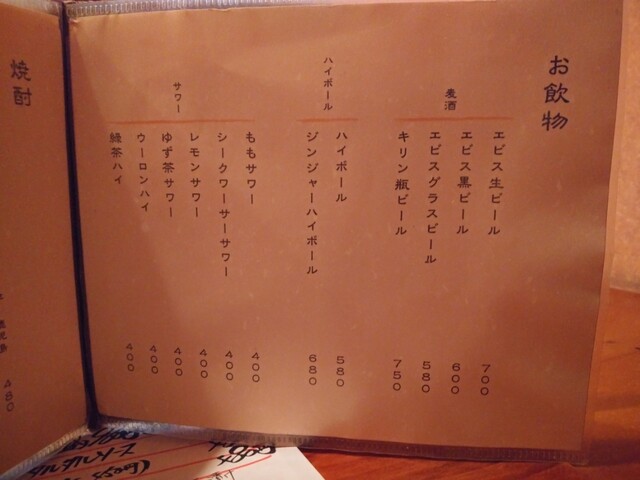 お飲物
麦酒
エビス生ビール 700
エビス黒ビール 600
エビスグラスビール 580
キリン瓶ビール 750
ハイボール
ハイボール 580
ジンジャーハイボール 680
サワー
ももサワー 400
シークワーサーサワー 400
レモンサワー 400
ゆず茶サワー 400
ウーロンハイ 400
緑茶ハイ 400
焼酎
480
タルタルソース